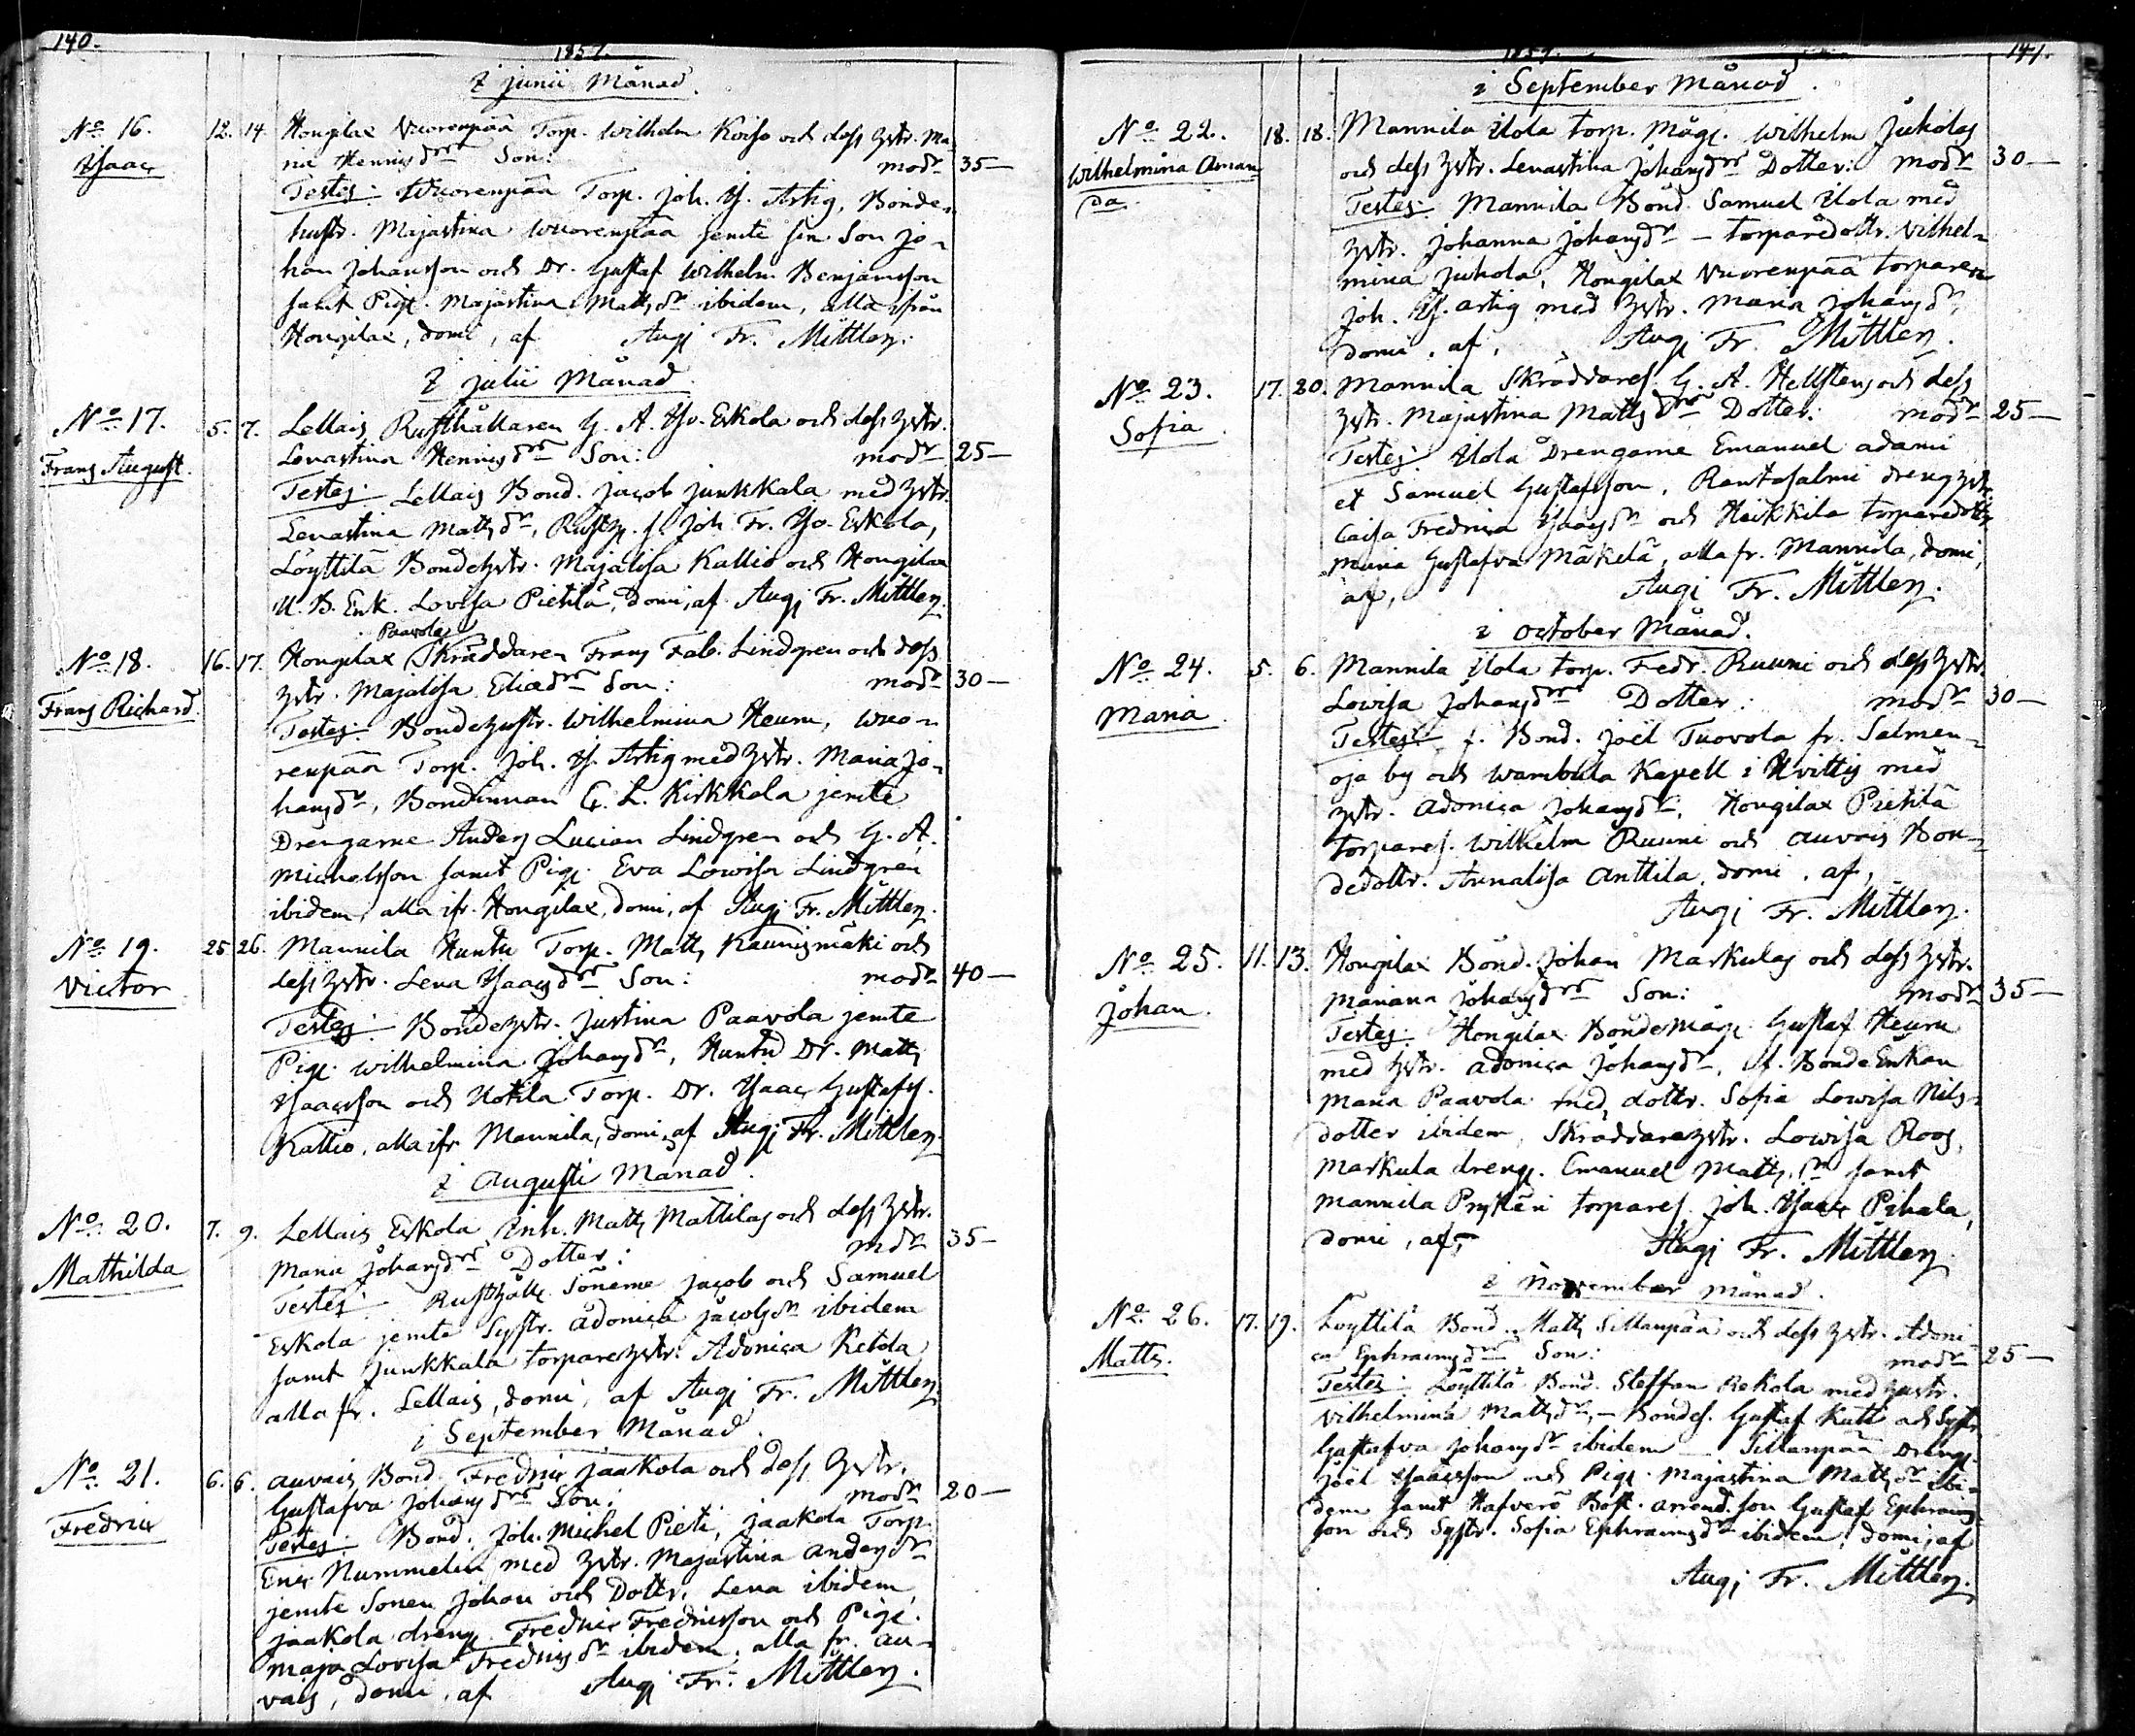 140.
1857.
I junii Månad.
No 16. 12. 14. Hongilax Wuorenpää Torp. Wilhelm Koiso och dess hstr. Ma-
Isaac ria Hennigsdrs Son: modr 35—
Testes: Wuorenpää Torp. Joh. Is. Artig, Bonde-
hustr. Majastina Wuorenpää jemte sin Son Jo-
han Johansson och Dr. Gustaf Wilhelm Benjamsson
samt Pig. Majastina Mattsdr ibidem, alla ifrån
Hongilax, domi, af Augs Fr. Mittler.
I julii Månad.
No 17. 5. 7. Lellais Rusthållaren G. A. Iso-Eskola och dess hstr.
Frans August. Lenastina Hennigsdrs Son: modr 25—
Testes: Lellais Bond. Jacob Junkkala med hstr.
Lenastina Mattsdr, Rusth. s. Joh. Fr. Iso-Eskola,
Löyttilä Bondehstr. Majalisa Kallio och Hongilax
U. B. Enk. Lovisa Pietilä, domi, af Augs Fr. Mittler.
Paavola
No 18. 16. 17. Hongilax Skräddaren Frans Fab. Lindgren och dess
Frans Richard. hstr. Majalisa Eliaedrs Son: modr 30—
Testes: Bondehustr. Wilhelmina Heurn, Wuo-
renpää Torp. Joh. Is. Artig med hstr. Maria Jo-
hansdr, Bondinnan C. L. Kirkkala jemte
Drengarne Anders Lucian Lindgren och G. A.
Michelsson samt Pig. Eva Lowisa Lindgren
ibidem, alla ifr. Hongilax, domi, af Augs Fr. Mittler.
No 19. 25. 26. Mannila Huntu Torp. Matts Kaunismäki och
Victor dess hstr. Lena Isaacsdrs Son: modr 40—
Testes: Bondehstr. Justina Paavola jemte
Pig. Wilhelmina Johansdr, Huntu Dr. Matts
Isaacsson och Uotila Torp. Dr. Isaac Gustafss.
Kallio, alla ifr Mannila, domi, af Augs Fr. Mittler.
I Augusti Månad.
No 20. 7. 9. Lellais Eskola Inh. Matts Mattilas och dess hstr.
Mathilda Maria Johansdrs Dotter: modr 35—
Testes: Rusthålls Sönerne Jacob och Samuel
Eskola jemte Systr. Adonica Jacobsdr ibidem
samt Junkkala torparehstr. Adonica Ketola
alla fr. Lellais, domi, af Augs Fr. Mittler.
i September Månad.
No 21. 6. 6. Auvais Bond. Fredric Jaakola och dess hstr.
Fredric Gustafva Johansdrs Son: modr 20—
Testes: Bond. Joh. Michel Pieti, Jaakola Torp.
Eric Nummelin med hstr. Majastina Andersdr
jemte Sonen Johan och Dottr. Lena ibidem,
Jaakola dreng. Fredric Fredricsson och Pig.
Maja Lovisa Fredricsdr ibidem, alla fr. Au-
vais, domi, af Augs Fr. Mittler.
141.
1857.
i September Månad.
No 22. 18. 18. Mannila Uola torp. mågs. Wilhelm Juholas
Wilhelmina Aman- och dess hstr. Lenastina Johansdrs Dotter: modr 30—
da. Testes: Mannila Bond. Samuel Uola med
hstr. Johanna Johansdr — torparedottr. Vilhel-
mina Juhola, Hongilax Wuorenpää torparen
Joh. Is. Artig med hstr. Maria Johansdr,
domi, af, Augs Fr. Mittler.
No 23. 17. 20. Mannila Skräddares. G. A. Hellstens och dess
Sofia. hstr. Majastina Mattsdrs Dotter: modr 25—
Testes: Uola Drengarne Emanuel Adami
et Samuel Gustafsson, Rantasalmi drenghstr.
Caisa Fredrica Isaacsdr och Heikkilä torparedottr
Maria Gustafva Mäkelä, alla fr. Mannila, domi,
af, Augs Fr. Mittler.
i October Månad.
No 24. 5. 6. Mannila Uola torp. Fedr. Ruuni och dess hstr.
Maria. Lowisa Johansdrs Dotter: modr 30—
Testes: f. Bond. Joël Tuovola fr. Salmen-
oja by och Wambula Kapell i Hvittis med
hstr. Adonica Johansdr, Hongilax Pietilä
torpares. Wilhelm Ruuni och Auvais Bon-
dedottr. Annalisa Anttila, domi, af,
Augs Fr. Mittler.
No 25. 11. 13. Hongilax Bond. Johan Markulas och dess hstr.
Johan. Mariana Johansdrs Son: modr 35—
Testes: Hongilax Bondemågs. Gustaf Heurn
med hstr. Adonica Johansdr, f. BondeEnkan
Maria Paavola med dottr. Sofia Lowisa Nils-
dotter ibidem, Skräddarehstr. Lowisa Roos,
Markula dreng. Emanuel Mattssn samt
Mannila Prykäri torpares. Joh. Isaac Pihala,
domi, af, Augs Fr. Mittler.
i November månad.
No 26. 17. 19. Löyttilä Bond. Matts Sillanpää och dess hstr. Adoni-
Matts. ca Ephraimsdrs Son: modr 25—
Testes: Löyttilä Bond. Steffan Rekola med hustr.
Vilhelmina Mattsdr, — Bondes. Gustaf Kutti och Systr
Gustafva Johansdr ibidem — Sillanpää Dreng.
Joël Isaacsson och Pig. Majastina Mattsdr ibi-
dem samt Hafverö Bost. arrend. son Gustaf Ephraims-
son och Systr. Sofia Ephraimsdr ibidem, domi, af
Augs Fr. Mittler.